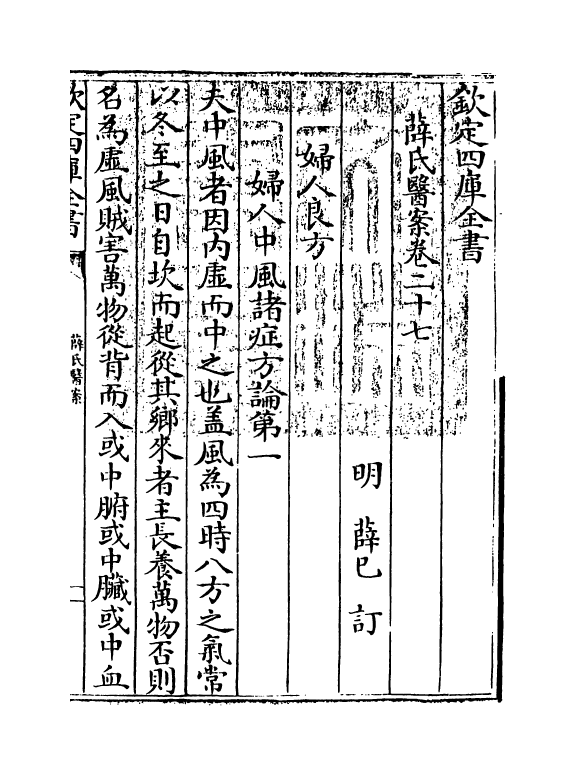 欽定四庫全書
薛氏醫案卷二十七
明 薛已 訂
婦人良方
婦人中風諸症方論第一
夫中風者因内虛而中之也盖風為四時八方之氣常
以冬至之日自坎而起從其鄉來者主長養萬物否則
名為虛風賊害萬物從背而入或中腑或中臟或中血
欽定四庫全書
薛氏醫案
一